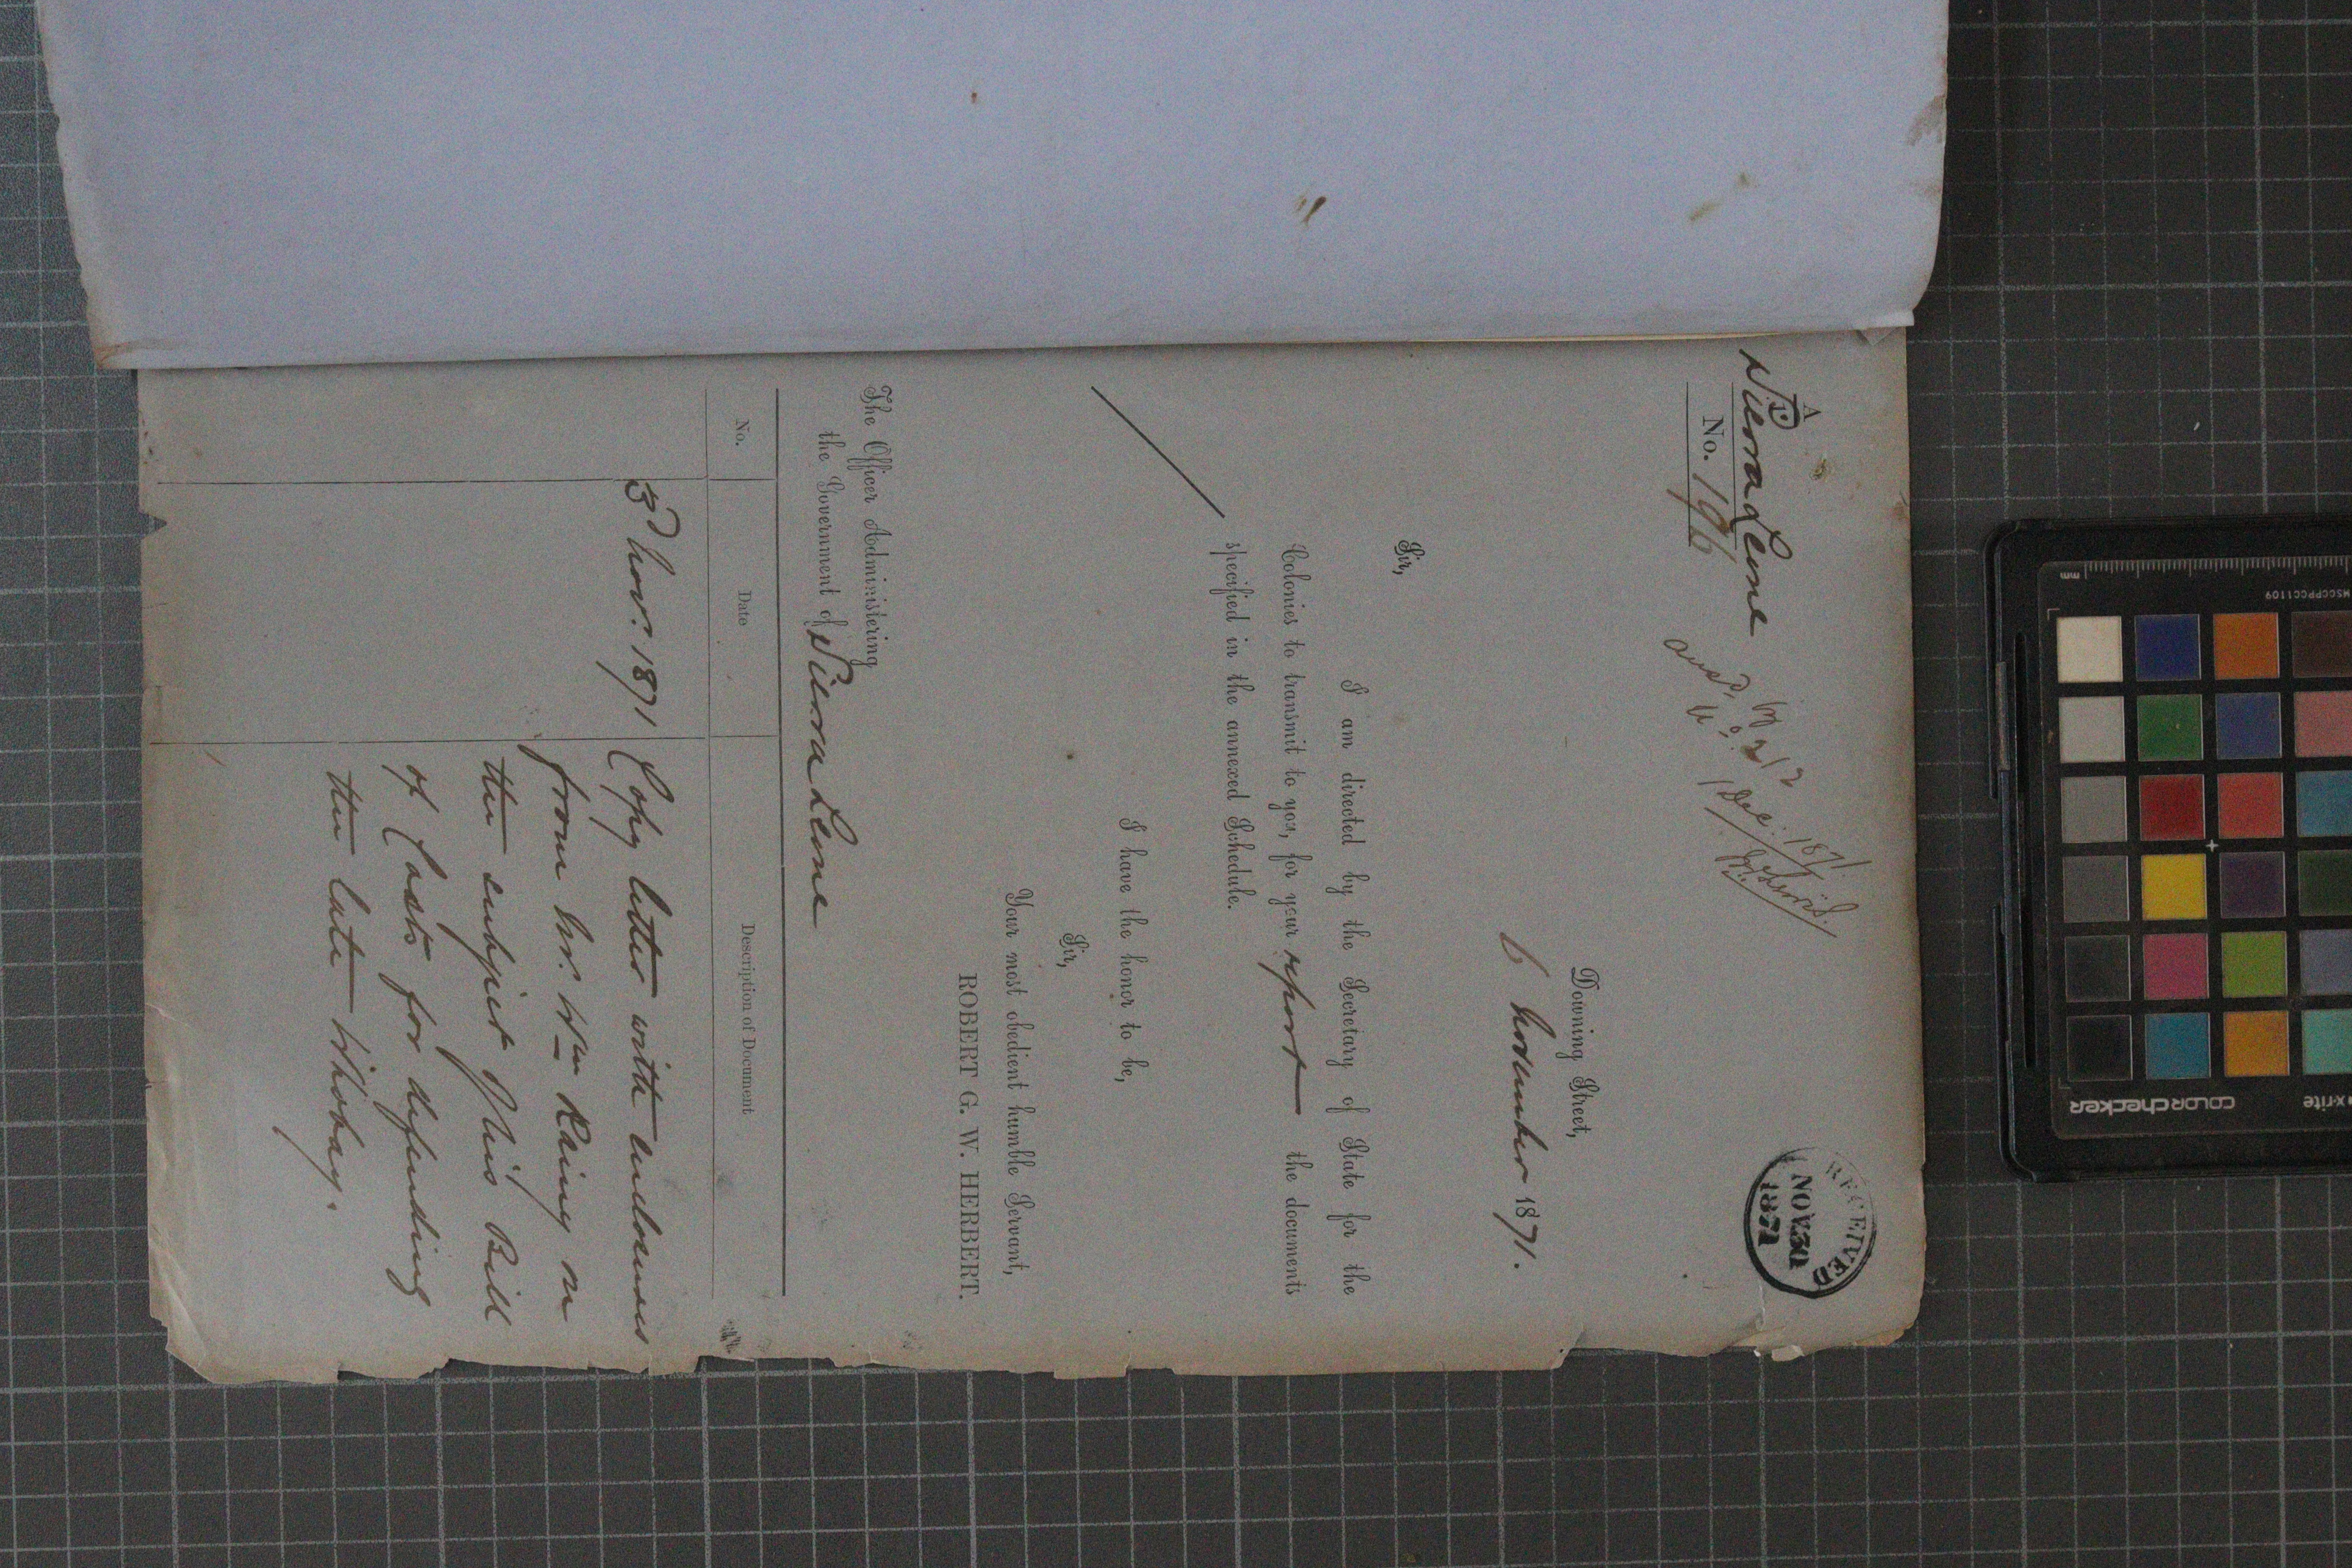 A
Sierra Leone
No. 196
ansd. by
1 Dec. 1871
RECEIVED
NOV 30
1871
Downing Street,
6 November 1871.
Sir,
I am directed by the Secretary of State for the
Colonies to transmit to you, for your report the documents
specified in the annexed Schedule.
I have the honor to be,
Sir,
Your most obedient humble Servant,
ROBERT G. W. HERBERT.
The Officer Administering
the Government of Sierra Leone
No. Date Description of Document
3d Novr. 1871 Copy letter with enclosures
from Mr. Wm Rainy on
the subject of his Bill
of Costs for defending
the late
mm
MSCCPPCC1109
x-rite
colorchecker